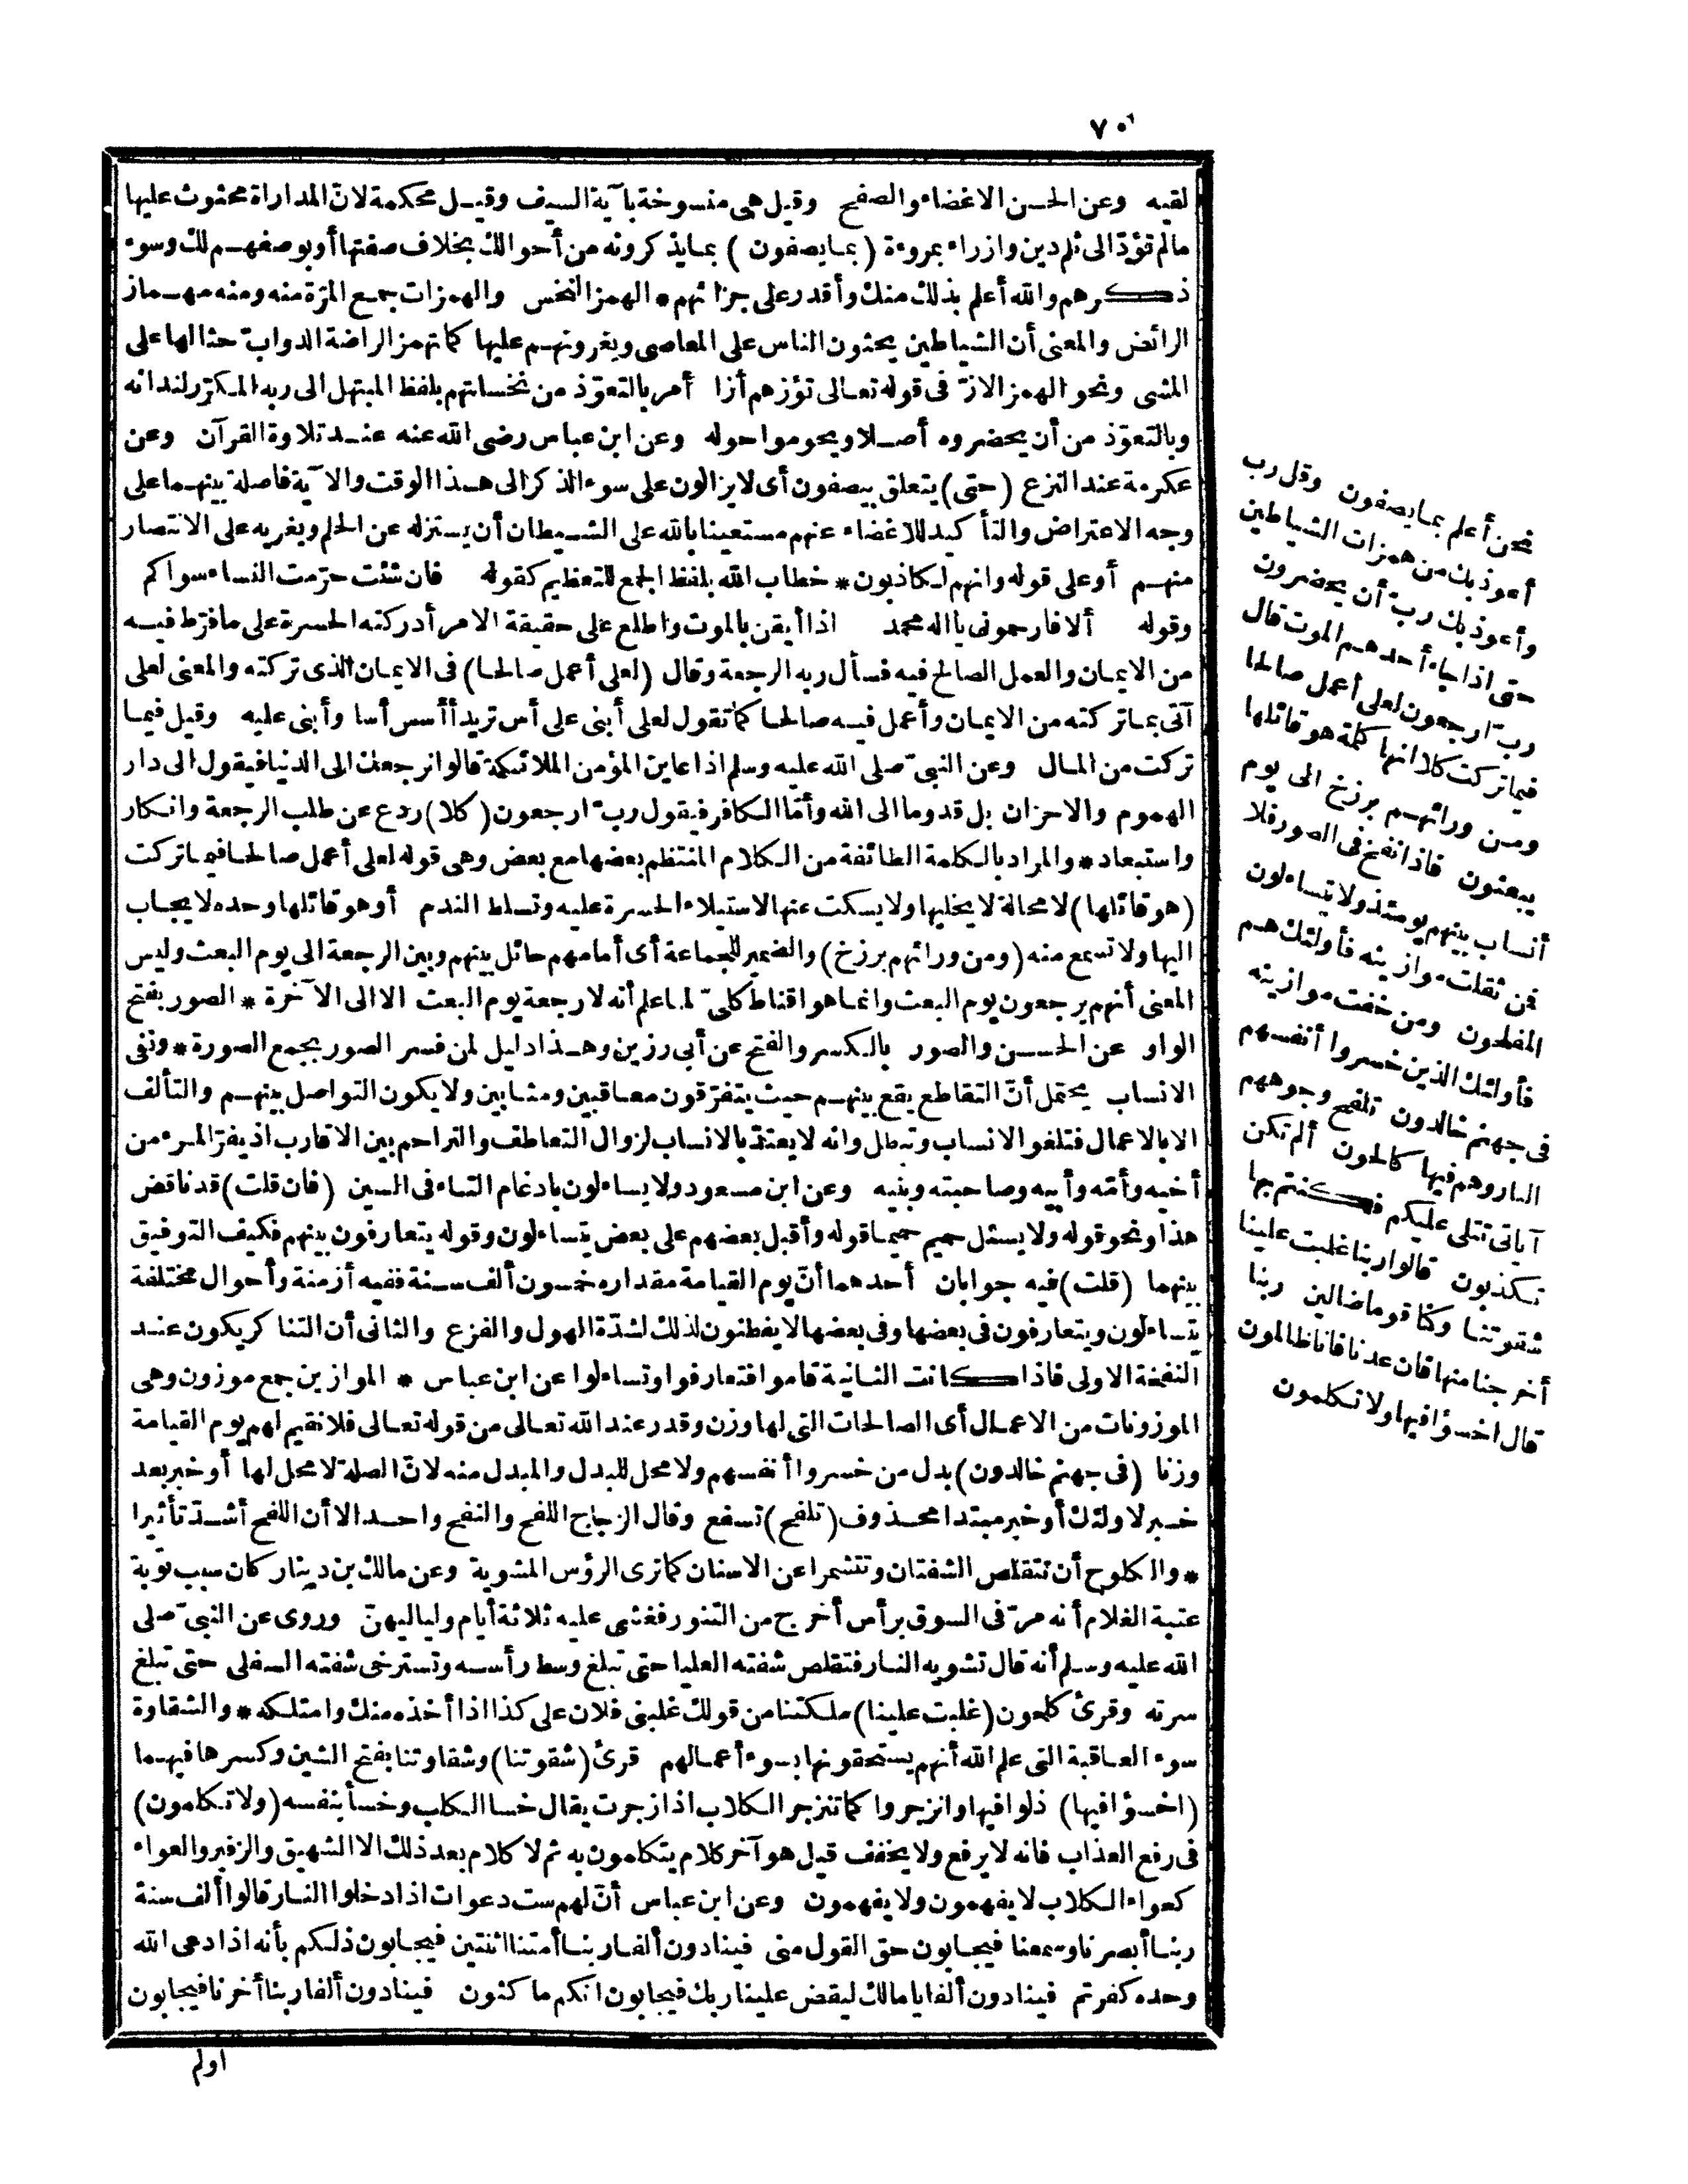 ٧٠
لقيه وعن الحسن الاغضاء والصفح وقيل هى منسوخة بآية السيف وقيل محكمة لانّ المداراة محثوث عليها
مالم تؤدّ الى ثلم دين وازراء بمروءة (بما يصفون) بما يذكرونه من أحوالك بخلاف صفتها أو بوصفهم لك وسوء
ذكرهم والله أعلم بذلك منك وأقدر على جزائهم * الهمز النخس والهمزات جمع المرّة منه ومنه مهماز
الرائض والمعنى أن الشياطين يحثون الناس على المعاصى ويغرونهم عليها كما تهمز الراضة الدوابّ حثا لها على
المشى ونحو الهمز الازّ فى قوله تعالى تؤزهم أزا أمر بالتعوّذ من نخساتهم بلفظ المبتهل الى ربه المكرّر لندائه
وبالتعوّذ من أن يحضروه أصلا ويحوموا حوله وعن ابن عباس رضى الله عنه عند تلاوة القرآن وعن
عكرمة عند النزع (حتى) يتعلق بيصفون أى لا يزالون على سوء الذكر الى هذا الوقت والآية فاصلة بينهما على
وجه الاعتراض والتأكيد للاغضاء عنهم مستعينا بالله على الشيطان أن يستزله عن الحلم ويغريه على الانتصار
منهم أو على قوله وانهم لكاذبون * خطاب الله بلفظ الجمع للتعظيم كقوله فان شئت حرّمت النساء سواكم
وقوله ألا فارحمونى يا اله محمد اذا أيقن بالموت واطلع على حقيقة الامر أدركته الحسرة على ما فرّط فيه
من الايمان والعمل الصالح فيه فسأل ربه الرجعة وقال (لعلى أعمل صالحا) فى الايمان الذى تركته والمعنى لعلى
آتى بما تركته من الايمان وأعمل فيه صالحا كما تقول لعلى أبنى على أس تريد أأسس أسا وأبنى عليه وقيل فيما
تركت من المال وعن النبىّ صلى الله عليه وسلم اذا عاين المؤمن الملائكة قالوا نرجعك الى الدنيا فيقول الى دار
الهموم والاحزان بل قدوما الى الله وأمّا الكافر فيقول ربّ ارجعون (كلا) ردع عن طلب الرجعة وانكار
واستبعاد * والمراد بالكلمة الطائفة من الكلام المنتظم بعضها مع بعض وهى قوله لعلى أعمل صالحا فيما تركت
(هو قائلها) لا محالة لا يخليها ولا يسكت عنها لاستيلاء الحسرة عليه وتسلط الندم أو هو قائلها وحده لا يجاب
اليها ولا تسمع منه (ومن ورائهم برزخ) والضمير للجماعة أى أمامهم حائل بينهم وبين الرجعة الى يوم البعث وليس
المعنى أنهم يرجعون يوم البعث وانما هو اقناط كلىّ لما علم أنه لا رجعة يوم البعث الا الى الآخرة * الصور بفتح
الواو عن الحسن والصور بالكسر والفتح عن أبى رزين وهذا دليل لمن فسر الصور بجمع الصورة * ونفى
الانساب يحتمل أنّ التقاطع يقع بينهم حيث يتفرّقون معاقبين ومثابين ولا يكون التواصل بينهم والتألف
الا بالاعمال فتلغو الانساب وتبطل وانه لا يعتدّ بالانساب لزوال التعاطف والتراحم بين الاقارب اذ يفرّ المرء من
أخيه وأمّه وأبيه وصاحبته وبنيه وعن ابن مسعود ولا يساءلون بادغام التاء فى السين (فان قلت) قد ناقض
هذا ونحو قوله ولا يسئل حميم حميما قوله وأقبل بعضهم على بعض يتساءلون وقوله يتعارفون بينهم فكيف التوفيق
بينهما (قلت) فيه جوابان أحدهما أنّ يوم القيامة مقداره خمسون ألف سنة ففيه أزمنة وأحوال مختلفة
يتساءلون ويتعارفون فى بعضها وفى بعضها لا يفطنون لذلك لشدّة الهول والفزع والثانى أن التناكر يكون عند
النفخة الاولى فاذا كانت الثانية قاموا فتعارفوا وتساءلوا عن ابن عباس * الموازين جمع موزون وهى
الموزونات من الاعمال أى الصالحات التى لها وزن وقدر عند الله تعالى من قوله تعالى فلا نقيم لهم يوم القيامة
وزنا (فى جهنم خالدون) بدل من خسروا أنفسهم ولا محل للبدل والمبدل منه لانّ الصلة لا محل لها أو خبر بعد
خبر لاولئك أو خبر مبتدا محذوف (تلفح) تسفع وقال الزجاج اللفح والنفح واحد الا أن اللفح أشدّ تأثيرا
* والكلوح أن تتقلص الشفتان وتتشمرا عن الاسنان كما ترى الرؤس المشوية وعن مالك بن دينار كان سبب توبة
عتبة الغلام أنه مرّ فى السوق برأس أخرج من التنور فغشى عليه ثلاثة أيام ولياليهنّ وروى عن النبىّ صلى
الله عليه وسلم أنه قال تشويه النار فتقلص شفته العليا حتى تبلغ وسط رأسه وتسترخى شفته السفلى حتى تبلغ
سرته وقرئ كلحون (غلبت علينا) ملكتنا من قولك غلبنى فلان على كذا اذا أخذه منك وامتلكه * والشقاوة
سوء العاقبة التى علم الله أنهم يستحقونها بسوء أعمالهم قرئ (شقوتنا) وشقاوتنا بفتح الشين وكسرها فيهما
(اخسؤا فيها) ذلوا فيها وانزجروا كما تنزجر الكلاب اذا زجرت يقال خسا الكلب وخسأ بنفسه (ولا تكلمون)
فى رفع العذاب فانه لا يرفع ولا يخفف قيل هو آخر كلام يتكلمون به ثم لا كلام بعد ذلك الا الشهيق والزفير والعواء
كعواء الكلاب لا يفهمون ولا يفهمون وعن ابن عباس أنّ لهم ست دعوات اذا دخلوا النار قالوا ألف سنة
ربنا أبصرنا وسمعنا فيجابون حق القول منى فينادون ألفا ربنا أمتنا اثنتين فيجابون ذلكم بأنه اذا دعى الله
وحده كفرتم فينادون ألفا يا مالك ليقض علينا ربك فيجابون انكم ماكثون فينادون ألفا ربنا أخرنا فيجابون
اولم
نحن أعلم بما يصفون وقل رب
أعوذ بك من همزات الشياطين
وأعوذ بك ربّ أن يحضرون
حتى اذا جاء أحدهم الموت قال
ربّ ارجعون لعلى أعمل صالحا
فيما تركت كلا انها كلمة هو قائلها
ومن ورائهم برزخ الى يوم
يبعثون فاذا نفخ فى الصور فلا
أنساب بينهم يومئذ ولا يتساءلون
فمن ثقلت موازينه فأولئك هم
المفلحون ومن خفت موازينه
فأولئك الذين خسروا أنفسهم
فى جهنم خالدون تلفح وجوههم
النار وهم فيها كالحون ألم تكن
آياتى تتلى عليكم فكنتم بها
تكذبون قالوا ربنا غلبت علينا
شقوتنا وكنا قوما ضالين ربنا
أخرجنا منها فان عدنا فانا ظالمون
قال اخسؤا فيها ولا تكلمون